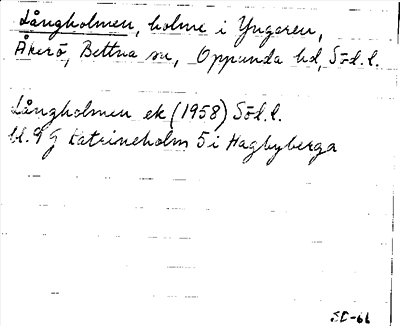 Långholmen, holme i Yngaren,
Åkerö, Bettna sn, Oppunda hd, Söd.l.
Långholmen ek (1958) Söd.l.
bl. 9 G Katrineholm 5 i Hagbyberga
SD-66